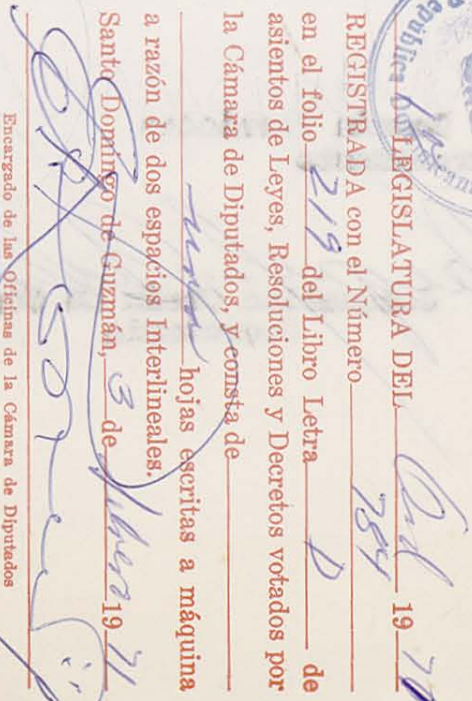 República Dominicana
LEGISLATURA DEL Ord 1970
REGISTRADA con el Número 784
en el folio 219 del Libro Letra D de
asientos de Leyes, Resoluciones y Decretos votados por
la Cámara de Diputados, y consta de
hojas escritas a máquina
a razón de dos espacios Interlineales.
Santo Domingo de Guzmán, 3 de 1971
Encargado de las Oficinas de la Cámara de Diputados